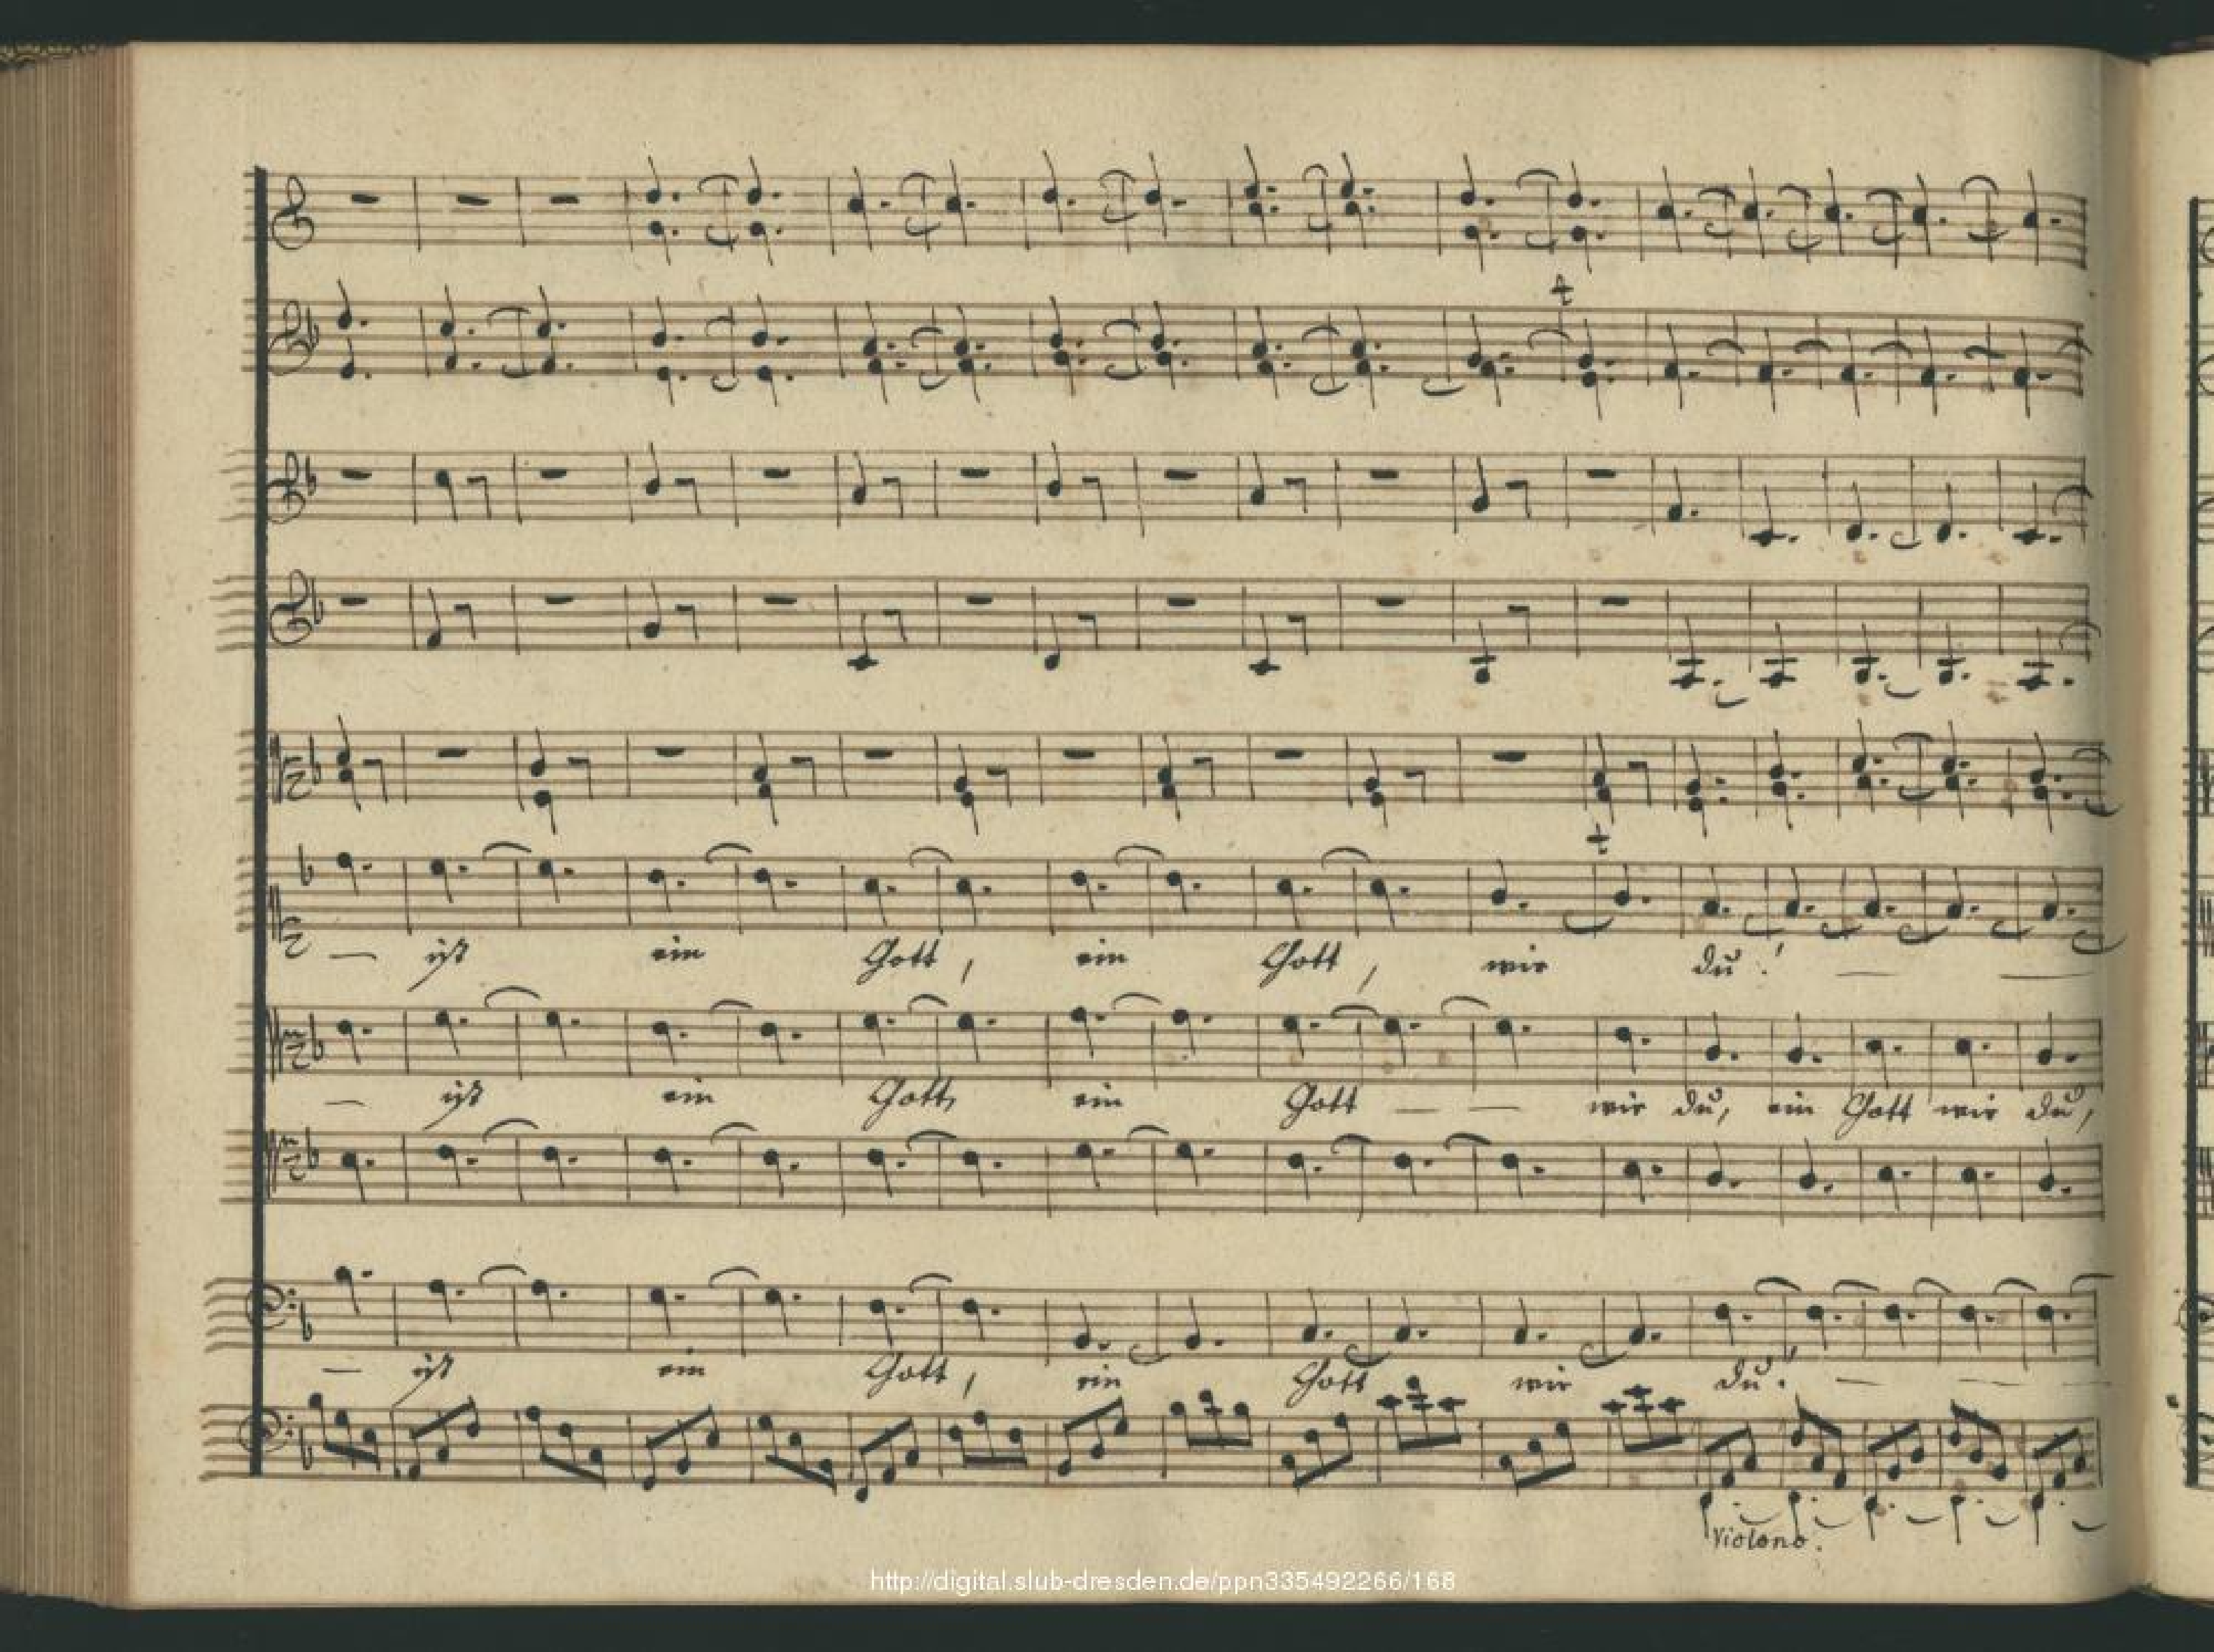 — ist ein Gott, ein Gott, wie du! — —
— ist ein Gott, ein Gott — — wie du, ein Gott wie du,
— ist ein Gott, ein Gott wie du! — — —
Violono.
http://digital.slub-dresden.de/ppn335492266/168